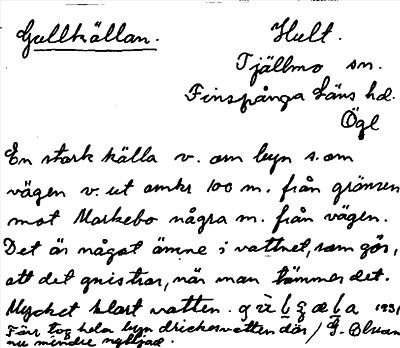 Gullkällan. Hult.
Tjällmo sn.
Finspånga läns hd.
Ögl
En stark källa v. om byn s. om
vägen v. ut omkr 100 m. från gränsen
mot Markebo några m. från vägen.
Det är något ämne i vattnet, som gör,
att det gnistrar, när man tömmer det.
Mycket klart vatten. 1931
Förr tog hela byn dricksvatten där / G.
nu mindre nyttjad.